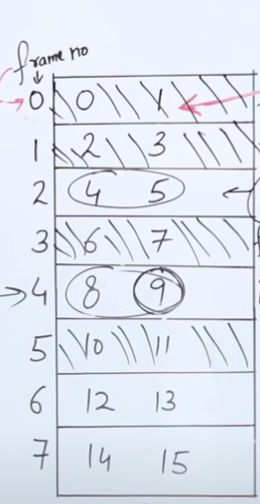 frame no
0 0 1
1 2 3
2 4 5
3 6 7
4 8 9
5 10 11
6 12 13
7 14 15